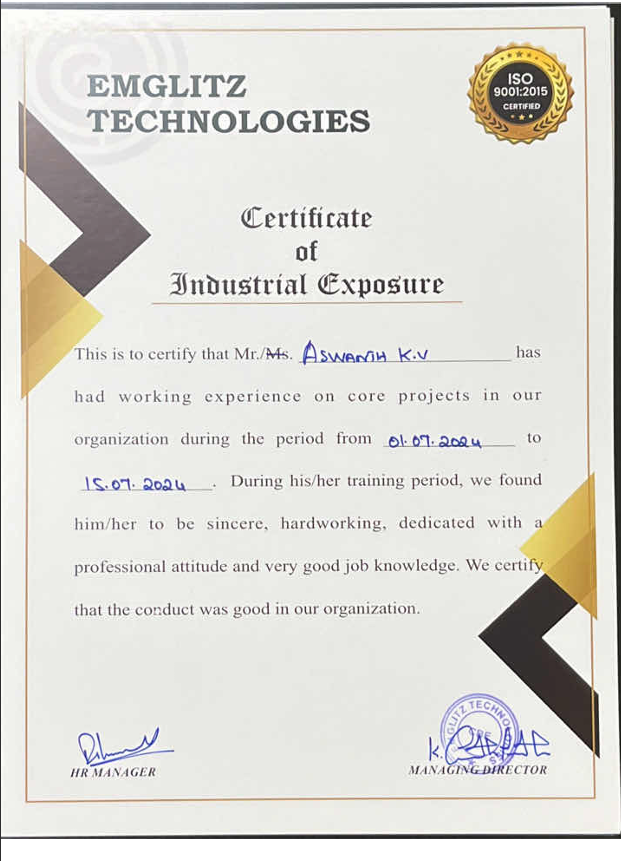 EMGLITZ
TECHNOLOGIES
ISO
9001:2015
CERTIFIED
Certificate
of
Industrial Exposure
This is to certify that Mr./Ms. ASWANTH K.V has
had working experience on core projects in our
organization during the period from 01.07.2024 to
15.07.2024. During his/her training period, we found
him/her to be sincere, hardworking, dedicated with a
professional attitude and very good job knowledge. We certify
that the conduct was good in our organization.
HR MANAGER
MANAGING DIRECTOR